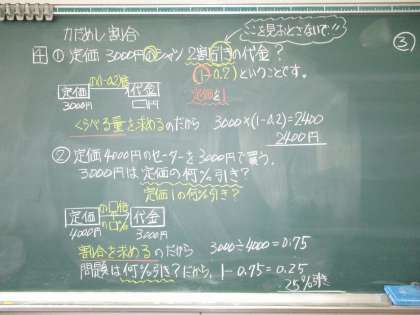 力だめし 割合
③
ここを見おとさないで!!
4 ① 定価 3000円のシャツ 2割引きの代金?
(1-0.2)ということです。
定価を1
の1-0.2倍
定価 代金
3000円 □円
くらべる量を求めるのだから 3000×(1-0.2)=2400
2400円
② 定価4000円のセーターを3000円で買う。
3000円は定価の何%引き?
定価1の何%引き?
の□倍
定価 代金
の□%
4000円 3000円
割合を求めるのだから 3000÷4000=0.75
問題は何%引き?だから、1-0.75=0.25
25%引き